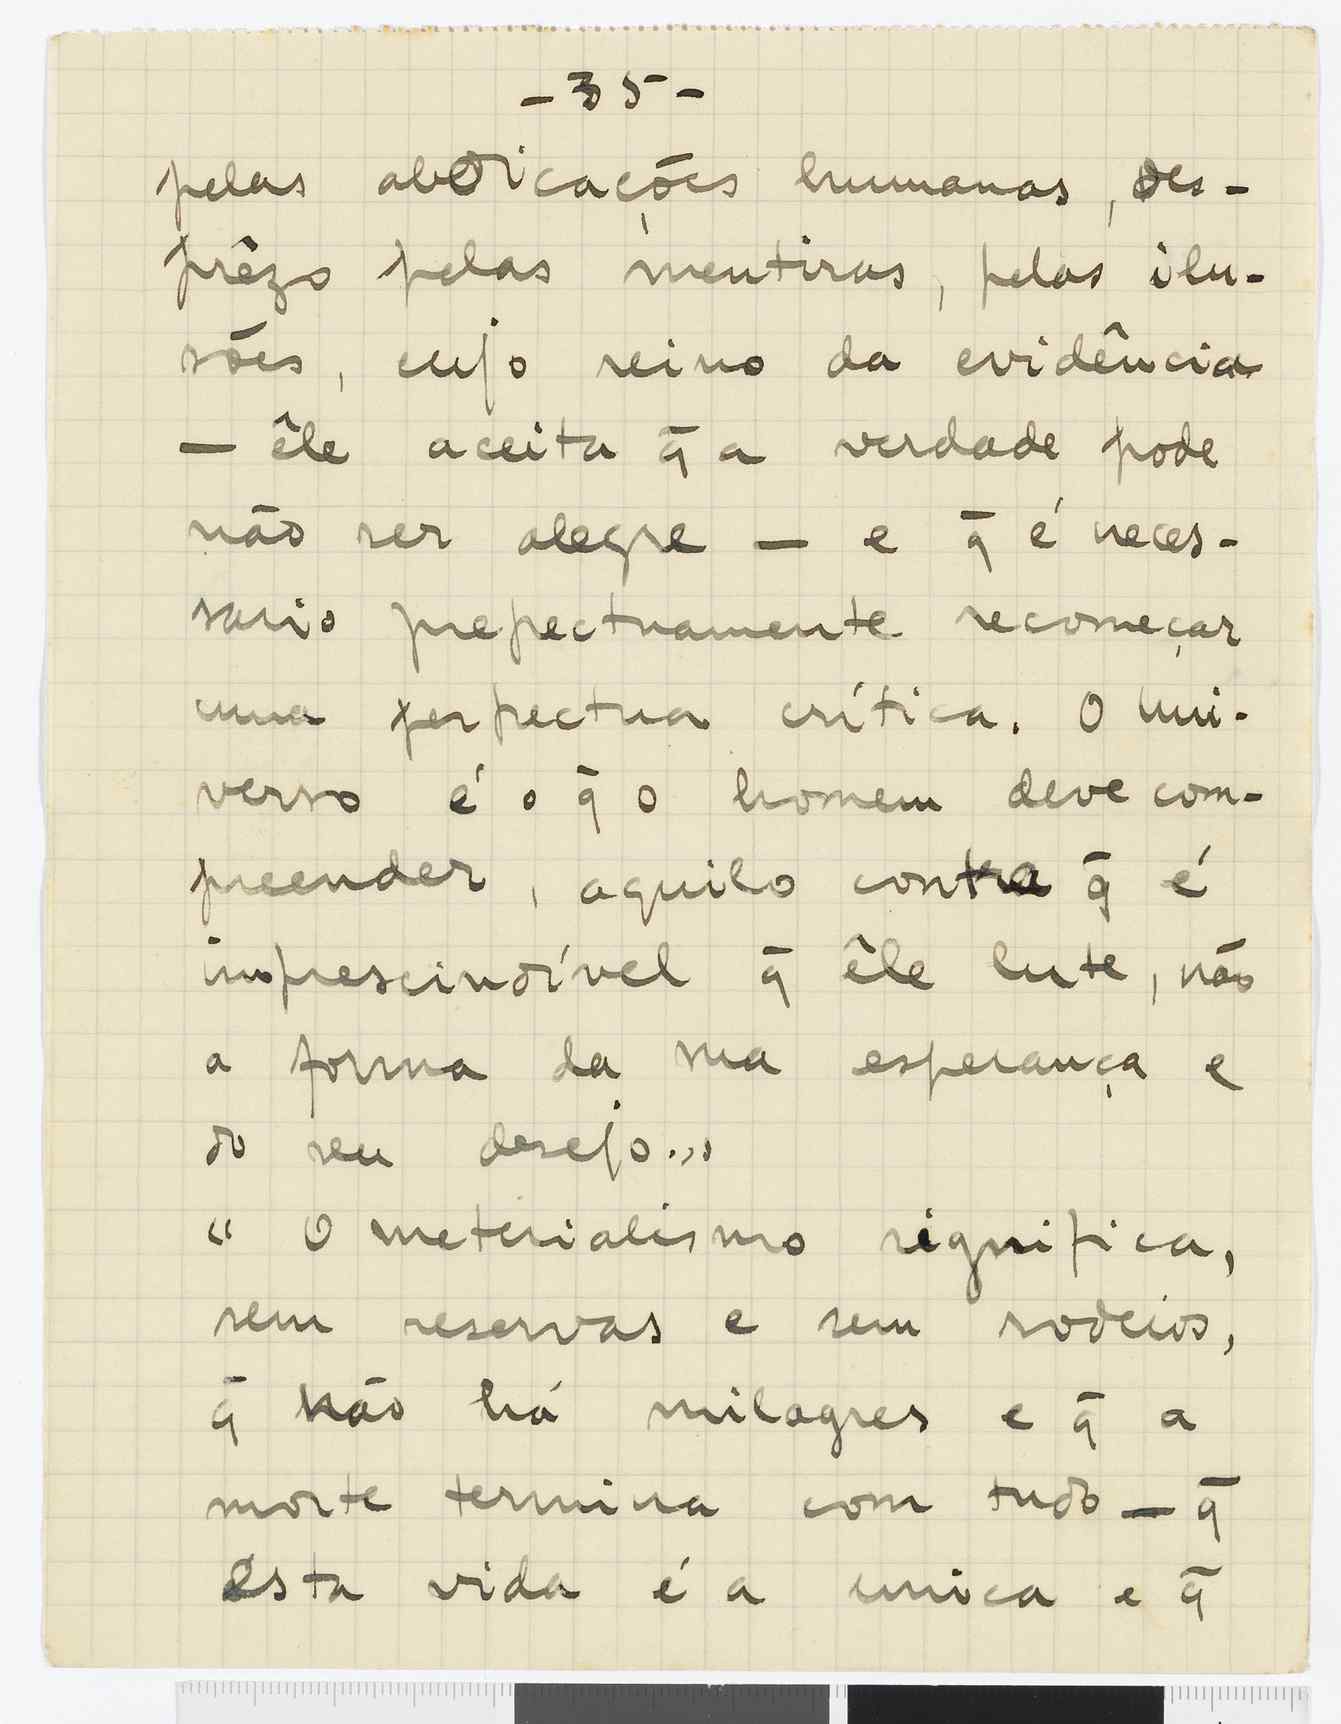 - 35 -
pelas abdicações humanas, des-
prêzo pelas mentiras, pelas ilu-
sões, cujo reino da evidência
— êle aceita q̄ a verdade pode
não ser alegre — e q̄ é neces-
sario prepectuamente recomeçar
uma perpectua crítica. O Uni-
verso é o q̄ o homem deve com-
preender, aquilo contra q̄ é
imprescindível q̄ êle lute, não
a forma da sua esperança e
do seu desejo...
" O meterialismo significa,
sem reservas e sem rodeios,
q̄ não há milagres e q̄ a
morte termina com tudo — q̄
esta vida é a unica e q̄